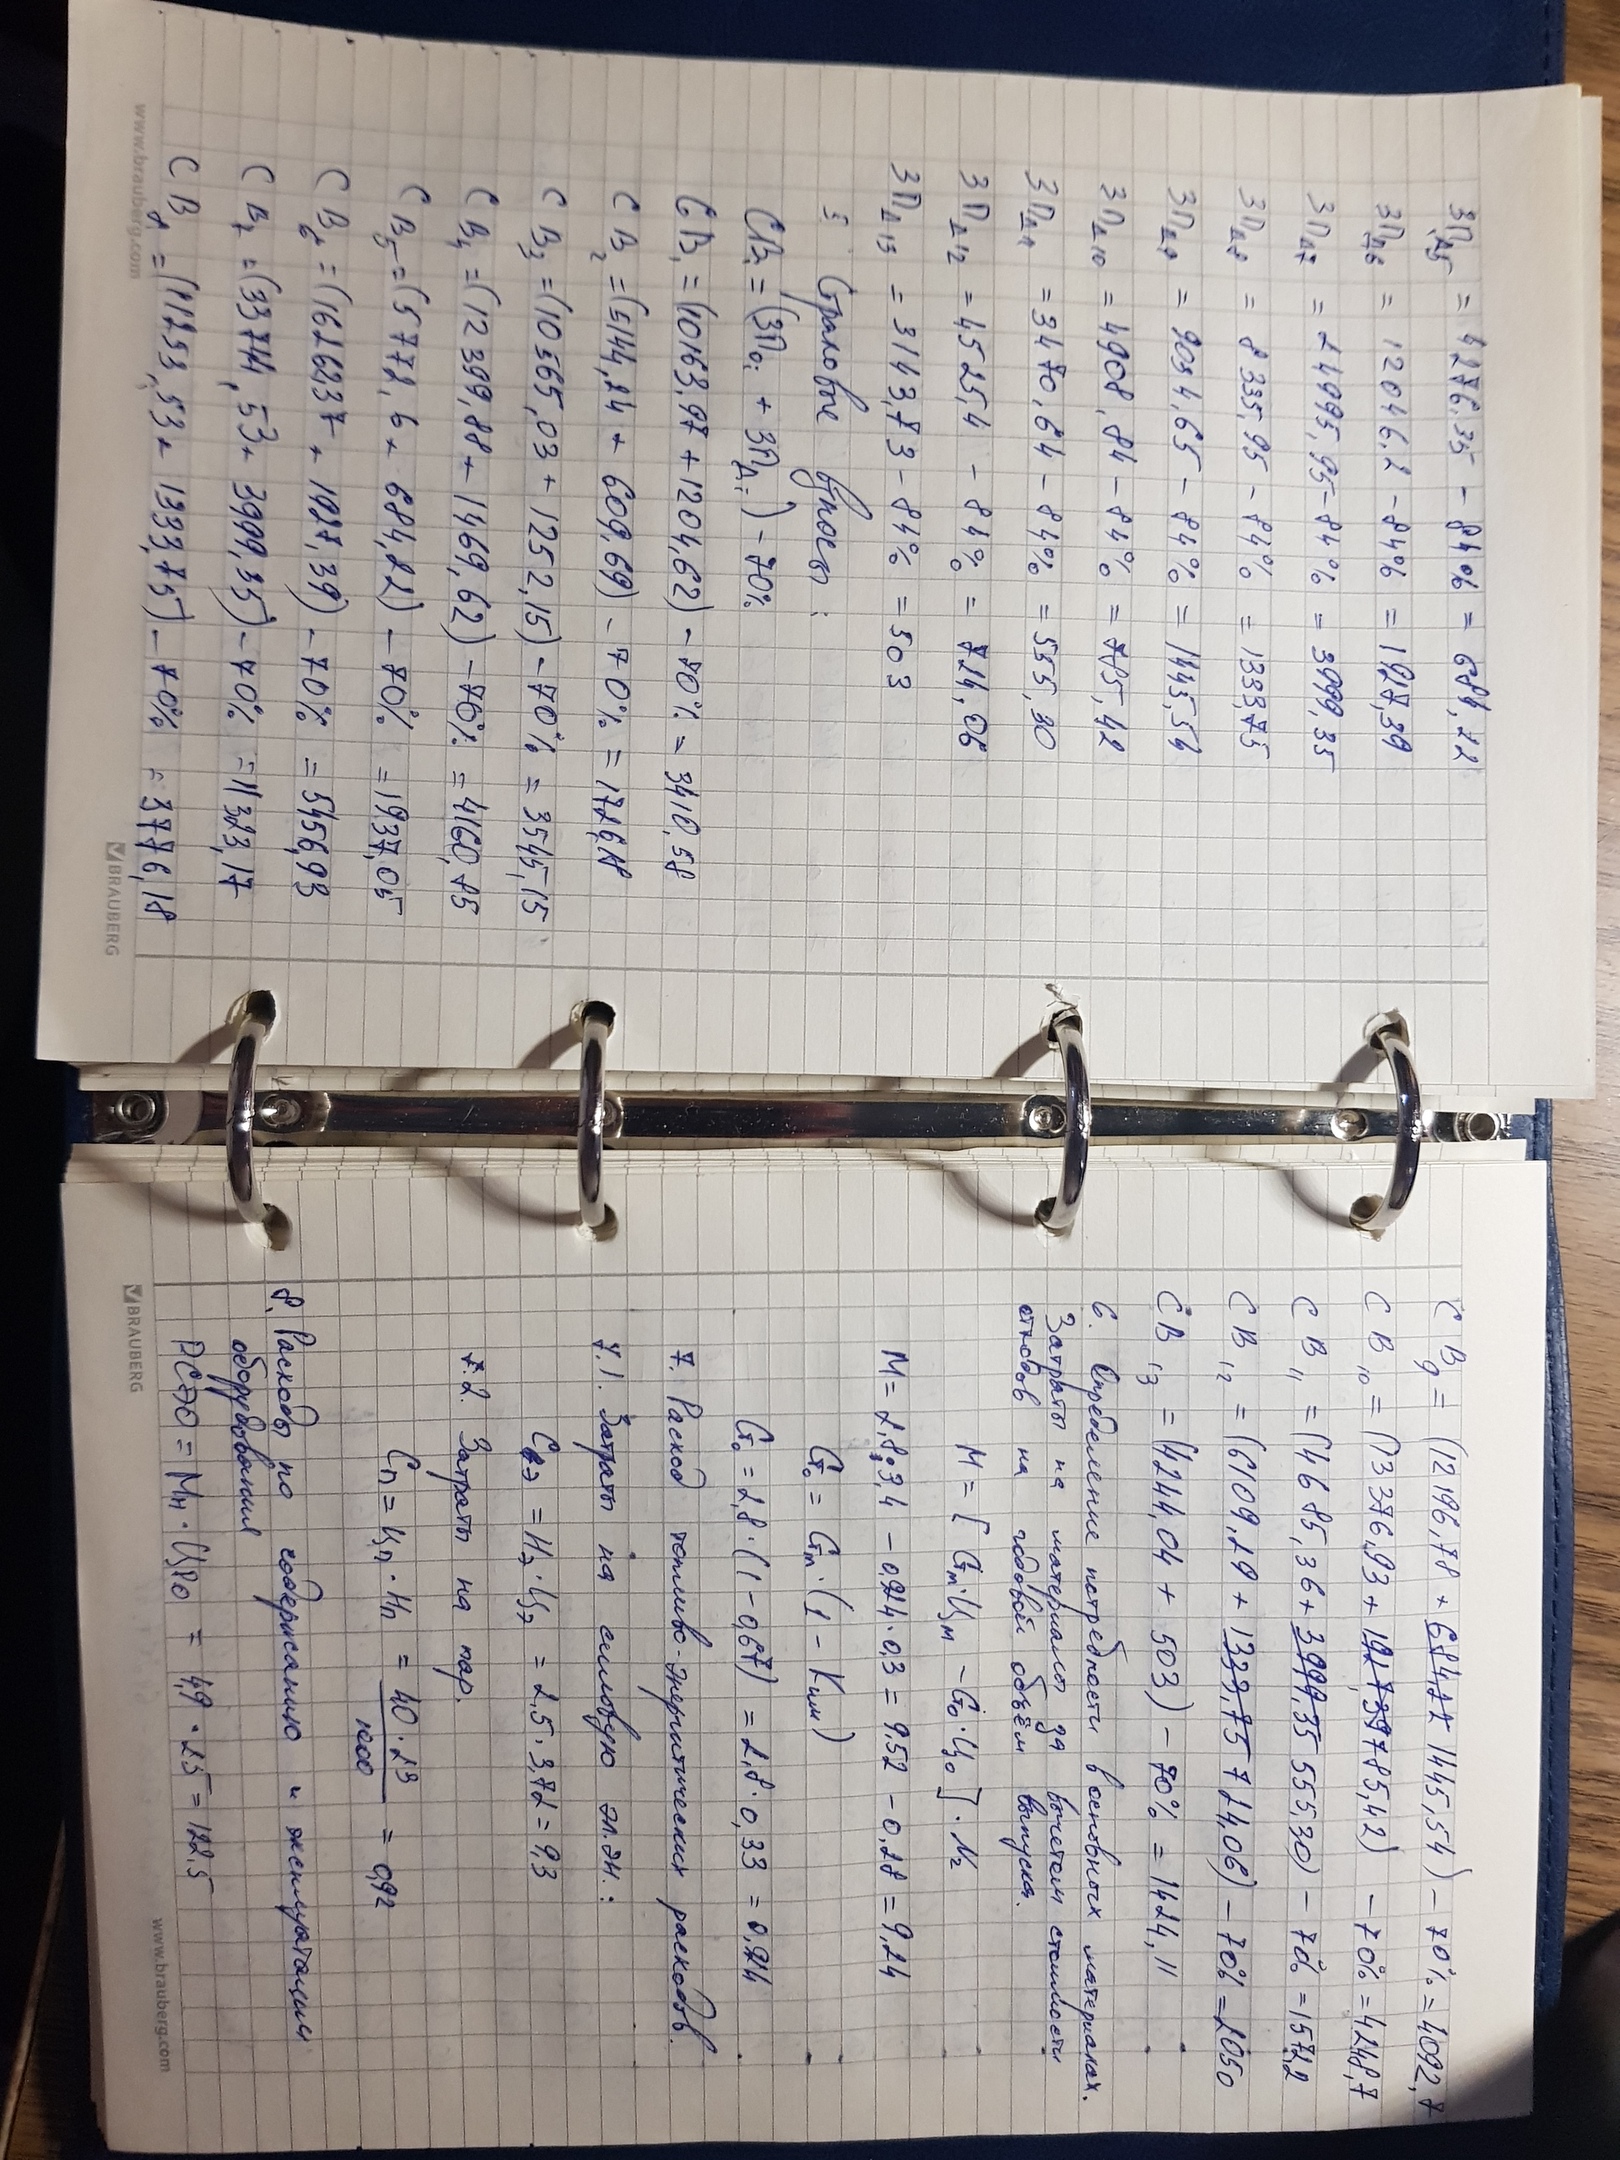 ЗПд5 = 4276,35 - 84% = 684,22
ЗПд6 = 12046,2 - 84% = 1927,39
ЗПд7 = 24995,95 - 84% = 3999,35
ЗПд8 = 8335,95 - 84% = 1333,75
ЗПд9 = 9034,65 - 84% = 1445,54
ЗПд10 = 4908,84 - 84% = 785,42
ЗПд11 = 3470,64 - 84% = 555,30
ЗПд12 = 4525,4 - 84% = 724,06
ЗПд13 = 3143,73 - 84% = 503
5 Страховые взносы:
СВi = (ЗПоi + ЗПдi) - 70%
СВ1 = (10163,97 + 1204,62) - 70% = 3410,58
СВ2 = (5144,24 + 609,69) - 70% = 1726,18
СВ3 = (10565,03 + 1252,15) - 70% = 3545,15
СВ4 = (12399,88 + 1469,62) - 70% = 4160,85
СВ5 = (5772,6 + 684,22) - 70% = 1937,05
СВ6 = (16262,37 + 1927,39) - 70% = 5456,93
СВ7 = (33744,53 + 3999,35) - 70% = 11323,17
СВ8 = (11253,53 + 1333,75) - 70% = 3776,18
www.brauberg.com
BRAUBERG
СВ9 = (12196,78 + 684,22 1445,54) - 70% = 4092,7
СВ10 = (13376,93 + 1927,39 785,42) - 70% = 4248,7
СВ11 = (4685,36 + 3999,35 555,30) - 70% = 1572,2
СВ12 = (6109,29 + 1333,75 724,06) - 70% = 2050
СВ13 = (4244,04 + 503) - 70% = 1424,11
6. Определение потребности в основных материалах.
Затраты на материалы за вычетом стоимости
отходов на годовой объём выпуска.
М = [Gm·Цм - Go·Цо]·Nг
М = 2,8·3,4 - 0,924·0,3 = 9,52 - 0,28 = 9,24
Go = Gm·(1 - Kим)
Go = 2,8·(1 - 0,67) = 2,8·0,33 = 0,924
7. Расход топливо-энергитических расходов.
7.1. Затраты на силовую эл.эн.:
Сэ = Нэ·Цэ = 2,5·3,72 = 9,3
7.2. Затраты на пар.
Сп = Цп·Нп = 40·23/1000 = 0,92
8. Расходы по содержанию и эксплуатации
оборудования
РСЭО = Мн·Цро = 4,9·25 = 122,5
BRAUBERG
www.brauberg.com